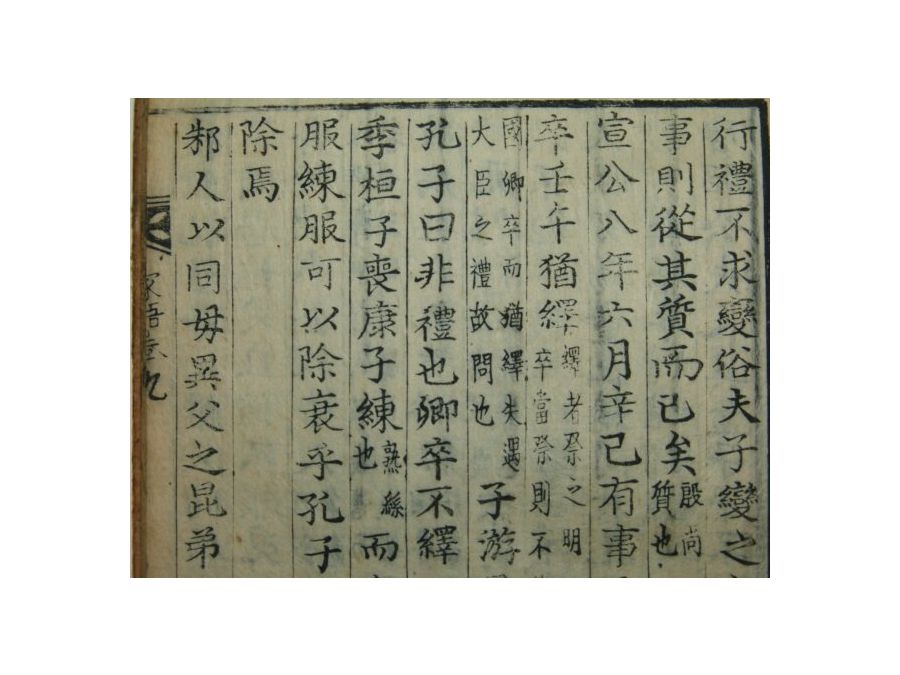 行禮不求變俗夫子變之
事則從其質而已矣殷尚質也
宣公八年六月辛巳有事
卒壬午猶繹繹者祭之明
卒當祭則不
國卿卒而猶繹失遇
大臣之禮故問也子游
孔子曰非禮也卿卒不繹
季桓子喪康子練熟絲也而
服練服可以除衰乎孔子
除焉
邾人以同母異父之昆弟
家語卷九